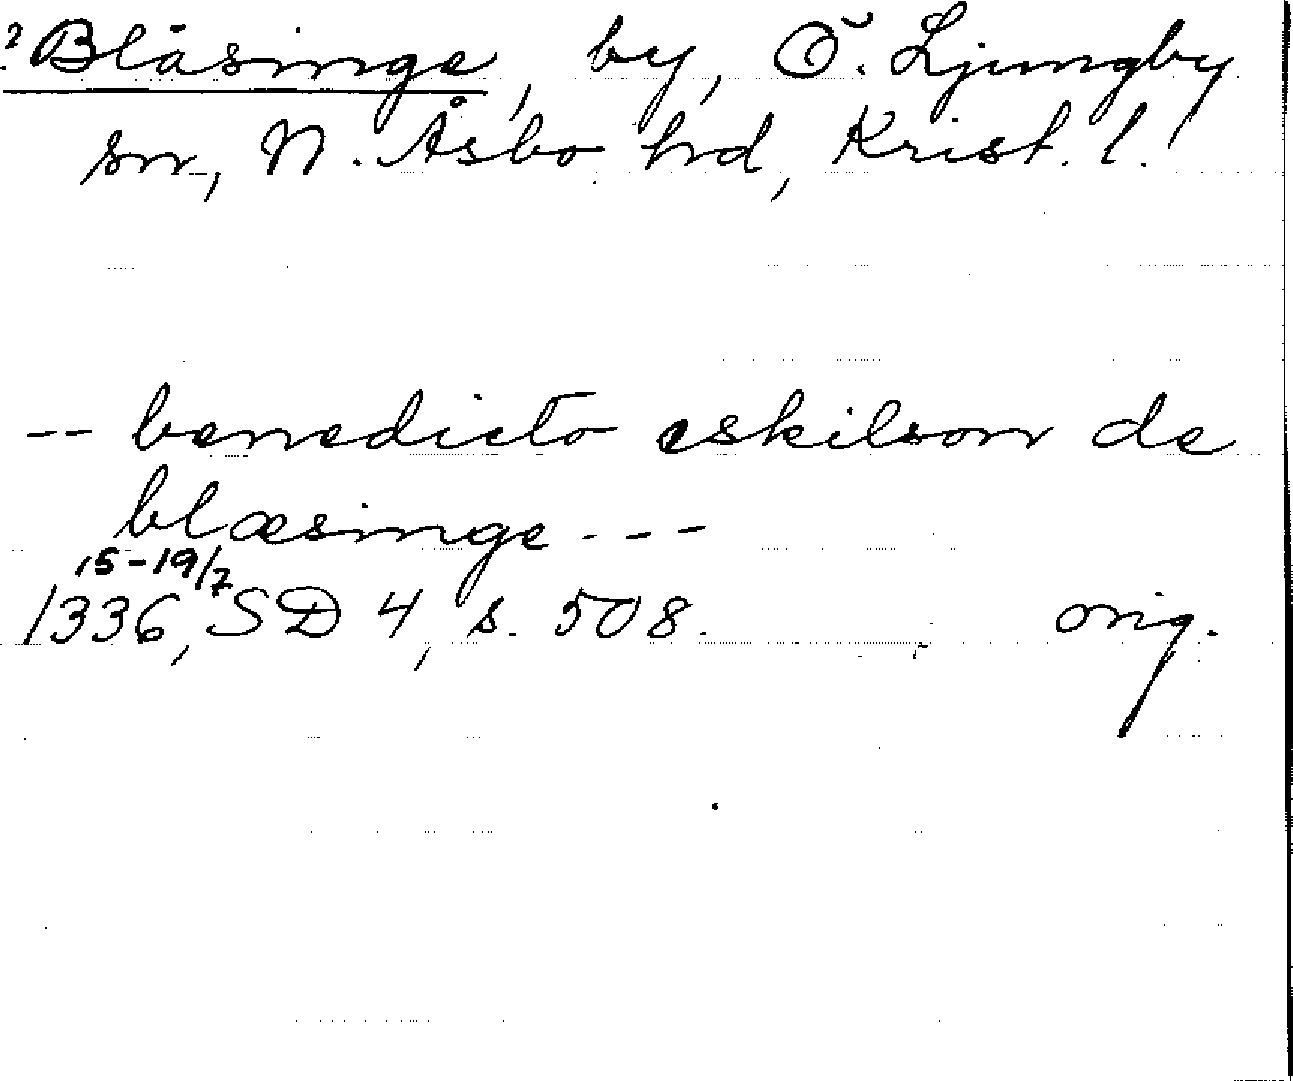 ? Blåsinge, by, Ö. Ljungby
sn, N. Åsbo hd, Krist. l.
-- benedicto eskilson de
blæsinge ---
15-19/7
1336, SD 4, s. 508. orig.